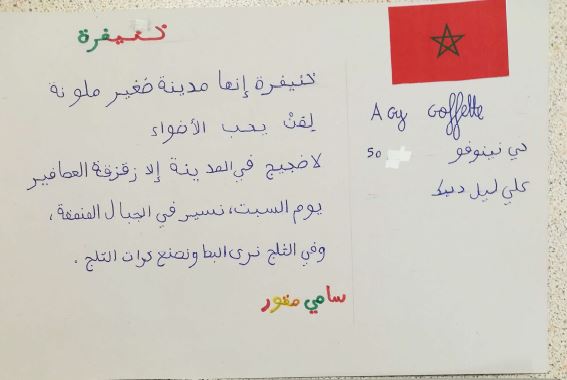 خنيفرة
خنيفرة إنها مدينة صغير ملونة
لِمَنْ يحب الأضواء
لا ضجيج في المدينة إلا زقزقة العصافير
يوم السبت، نسير في الجبال
وفي الثلج نرى البط ونصنع كرات الثلج.
سامي مقور
A Gy Goffette
50
علي ليل